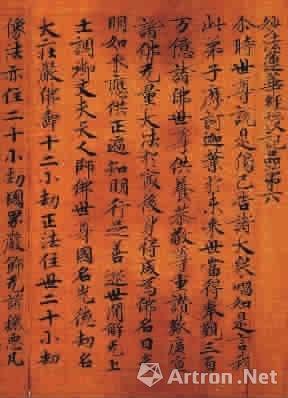 妙法蓮華經授記品第六
尒時世尊說是偈已告諸大衆唱如是言我
此弟子摩訶迦葉於未來世當得奉覲三百
万億諸佛世尊供養恭敬尊重讚歎廣宣
諸佛无量大法於冣後身得成為佛名曰光
明如來應供正遍知明行足善逝世間解无上
士調御丈夫天人師佛世尊國名光德劫名
大莊嚴佛壽十二小劫正法住世二十小劫
像法亦住二十小劫國界嚴飾无諸穢惡瓦
Artron.Net